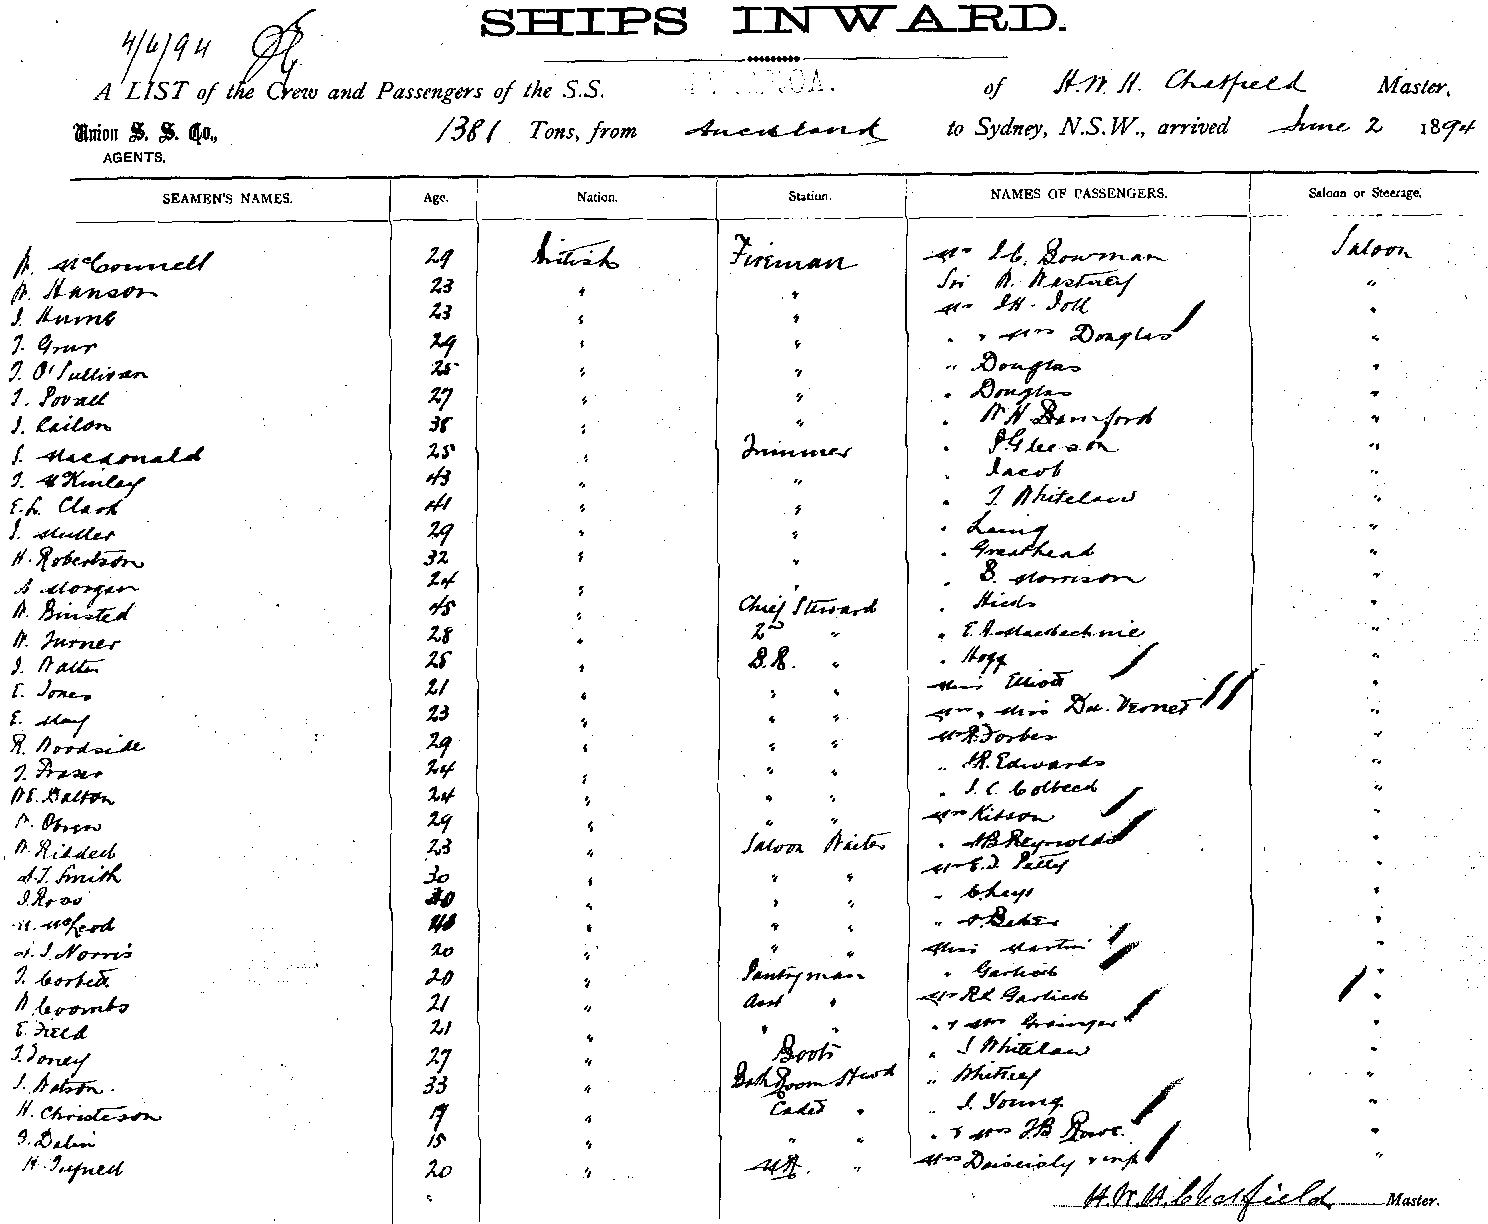 SHIPS INWARD.
4/6/94
A LIST of the Crew and Passengers of the S.S. of H. W. H. Chatfield Master,
Union S. S. Co., 1381 Tons, from Auckland to Sydney, N.S.W., arrived June 2 1894
AGENTS.
SEAMEN'S NAMES. Age. Nation. Station. NAMES OF PASSENGERS. Saloon or Steerage.
W. McConnell 29 British Fireman Mr Bowman Saloon
W. Hanson 23 " " "
J. Hume 23 " " Mr "
29 " " " " Mrs Douglas "
T. O'Sullivan 25 " " " Douglas "
27 " " " Douglas "
38 " " " W H Bamford "
J. Macdonald 25 " Trimmer " J Gleeson "
T. McKinley 43 " " " Jacob "
E. L. Clark 41 " " " T. Whitelaw "
29 " " " Laing "
H. Robertson 32 " " " Greathead "
A Morgan 24 " " " S. Morrison "
W. Binsted 45 " Chief Steward " "
W. Turner 28 " 2nd " " "
J. Walter 25 " B.R. " " Hogg "
E. Jones 21 " " " Miss Elliott "
E. May 23 " " " Mr " Miss "
R. Woodside 29 " " " Mr R Forbes "
J. Fraser 24 " " " " Edwards "
W E. Dalton 24 " " " " J. C. "
29 " " " Mrs Kitson "
W. Riddell 23 " Saloon Waiter " Reynolds "
A. J. Smith 30 " " " Mr "
J. Ross " " " " "
McLeod " " " " Baker "
A. J. Norris 20 " " " Miss Martin "
T. Corbett 20 " Pantryman " Garlick "
W Coombs 21 " Asst " Mr Garlick "
E. Field 21 " " " " & Mrs Grainger "
27 " Boots " J Whitelaw "
J. Watson. 33 " Bath Room Stewd " Whitney "
H. Christeson " Cadet " " J. Young "
15 " " " " & Mrs J B Rowe. "
H. 20 " " Mrs & inft "
" H. W. H. Chatfield Master.